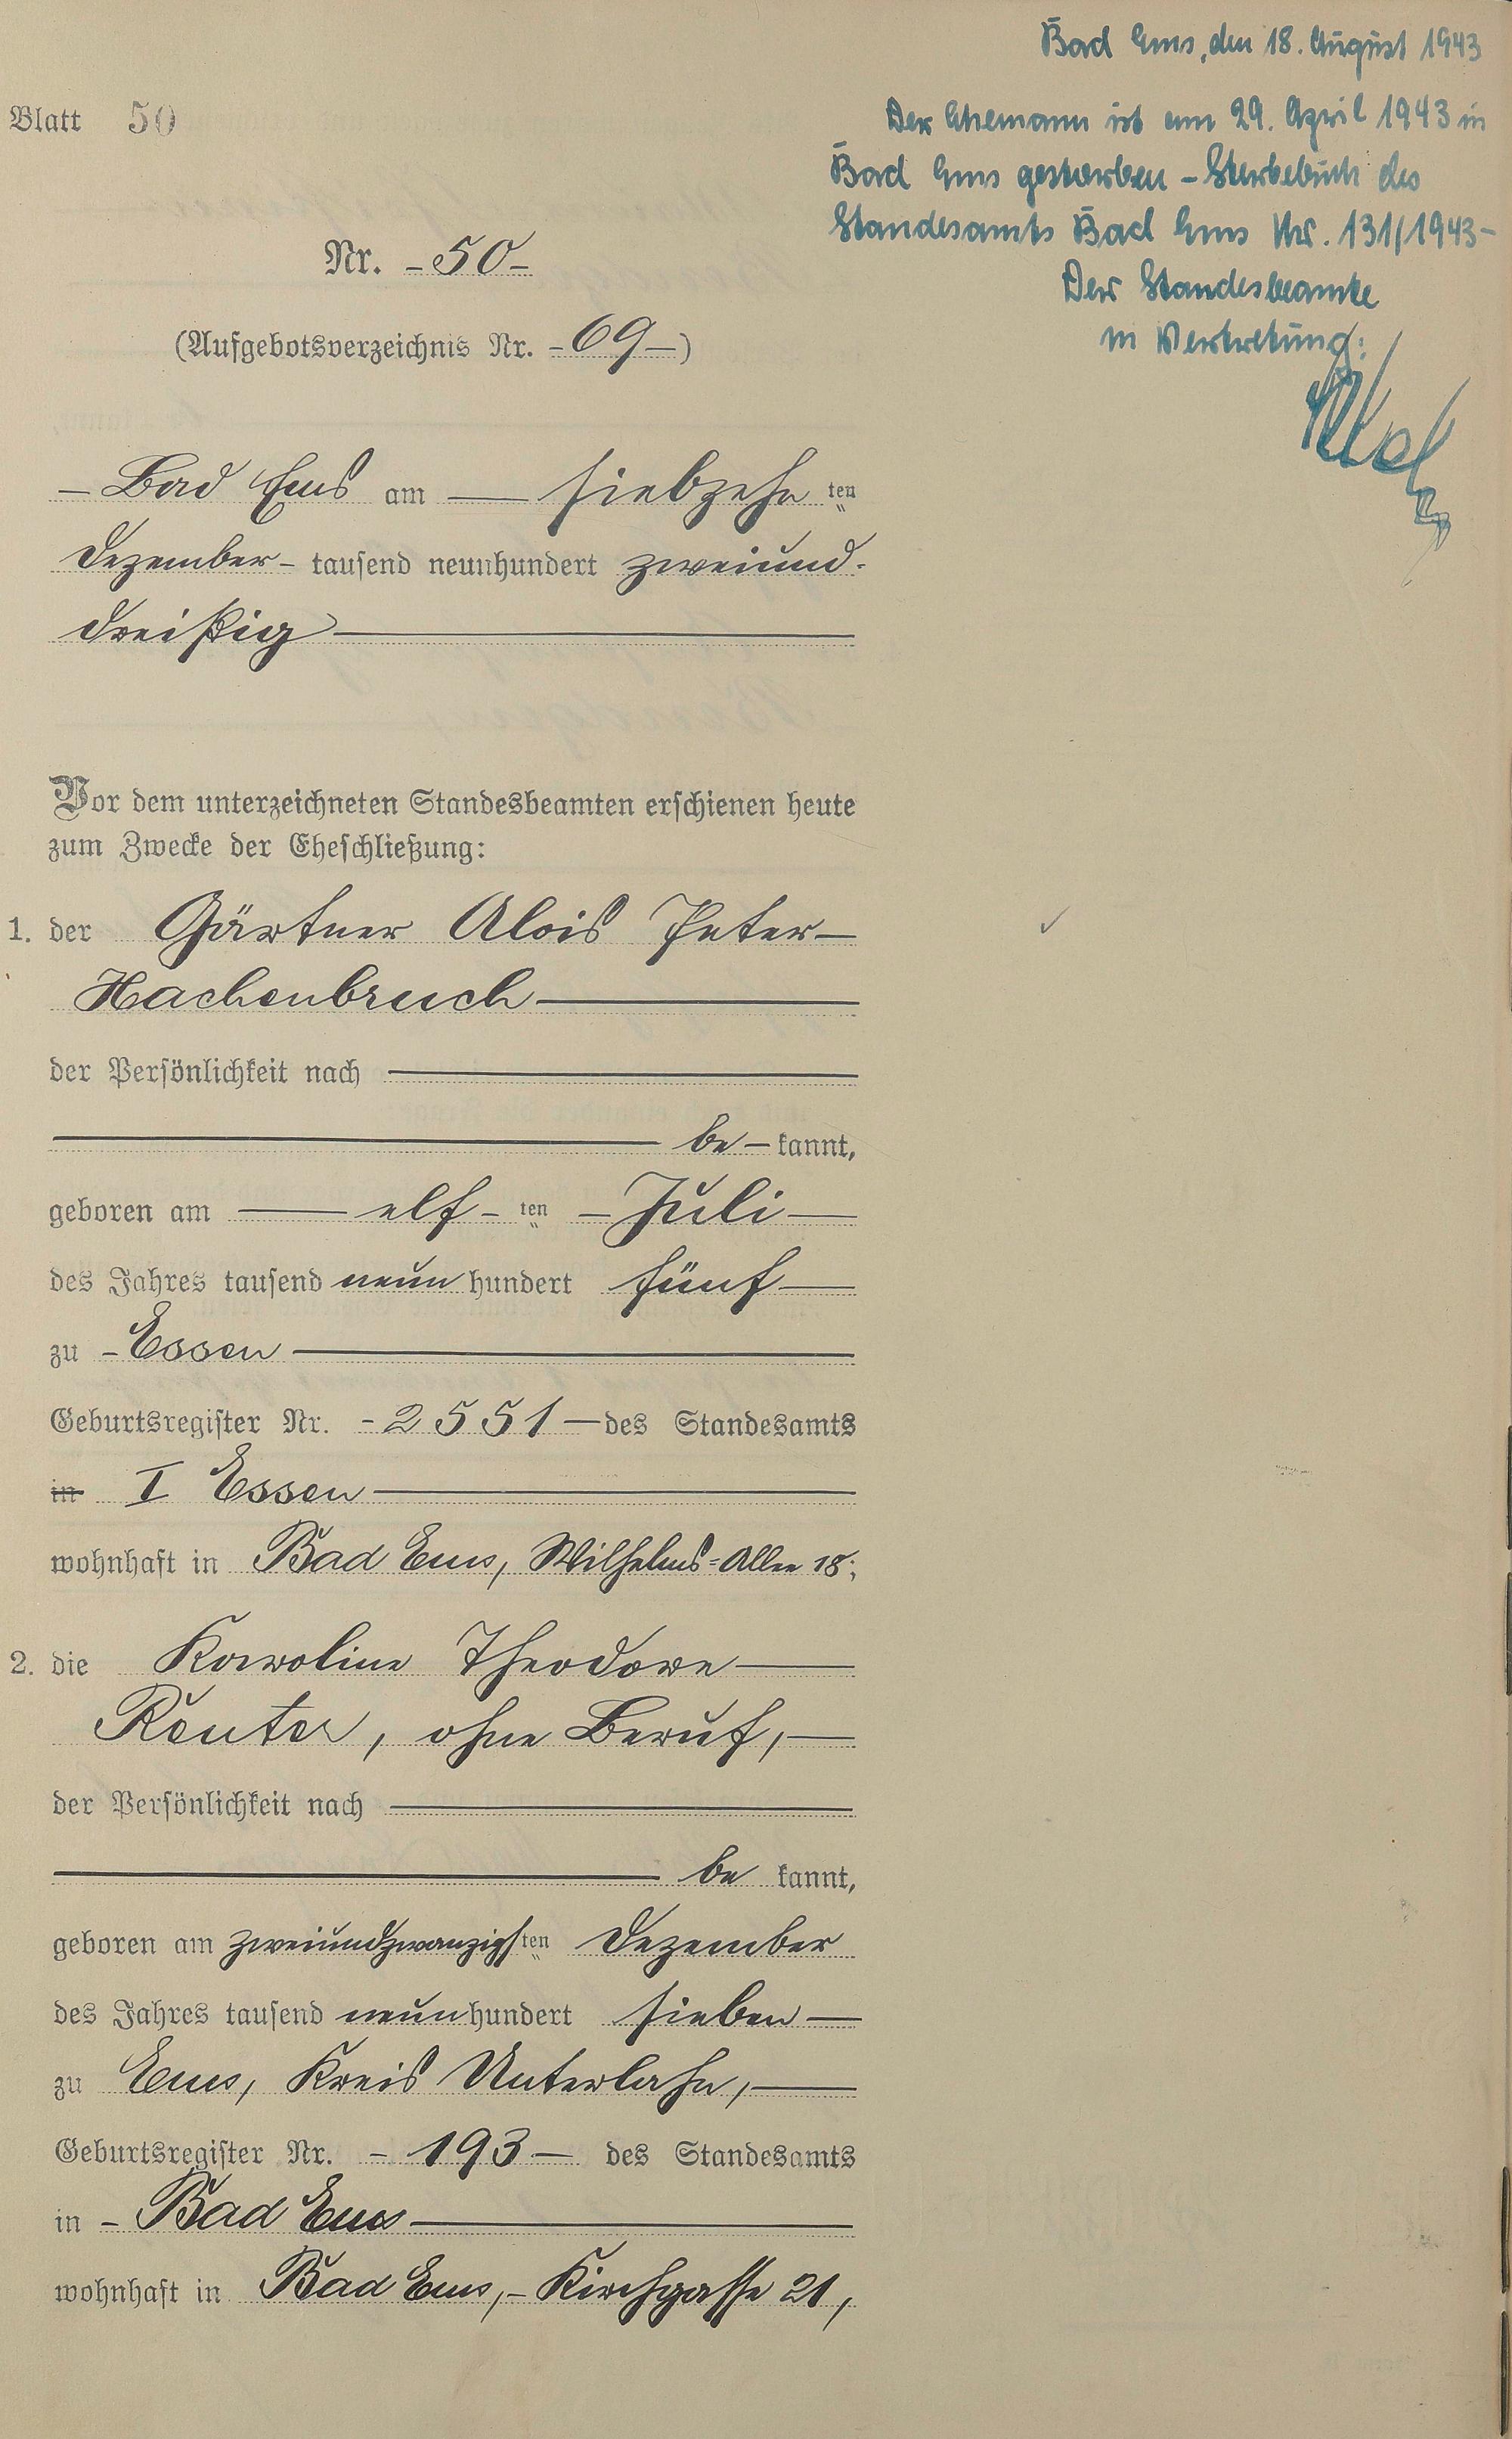 Bad Ems, den 18. August 1943
Der Ehemann ist am 29. April 1943 in
Bad Ems gestorben – Sterbebuch des
Standesamts Bad Ems Nr. 131/1943 –
Der Standesbeamte
in Vertretung:
Blatt 50
Nr. – 50 –
(Aufgebotsverzeichnis Nr. – 69 –)
– Bad Ems am — siebzehn ten
Dezember – tausend neunhundert zweiund-
dreißig —
Vor dem unterzeichneten Standesbeamten erschienen heute
zum Zwecke der Eheschließung:
1. der Gärtner Alois Peter –
Hachenbruch —
der Persönlichkeit nach —
— be – kannt,
geboren am — elf – ten – Juli —
des Jahres tausend neun hundert fünf —
zu – Essen —
Geburtsregister Nr. – 2551 – des Standesamts
in I Essen —
wohnhaft in Bad Ems, Wilhelms-Allee 18;
2. die Karoline Theodore —
Reuter, ohne Beruf, —
der Persönlichkeit nach —
— be kannt,
geboren am zweiundzwanzigsten Dezember
des Jahres tausend neun hundert sieben —
zu Ems, Kreis Unterlahn, —
Geburtsregister Nr. – 193 – des Standesamts
in – Bad Ems —
wohnhaft in Bad Ems, – Kirchgasse 21,